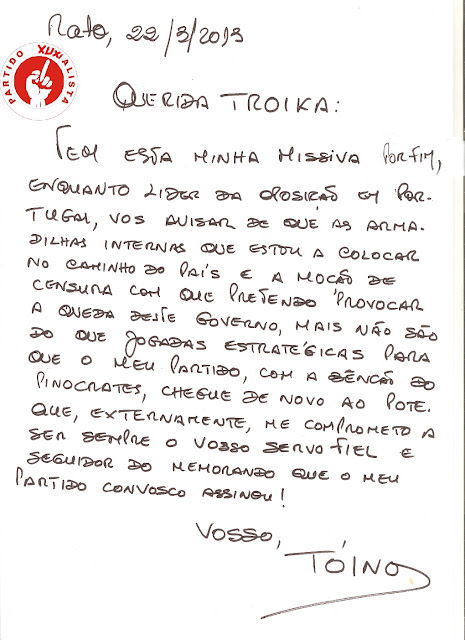 Rato, 22/3/2013
PARTIDO XUXIALISTA
QUERIDA TROIKA:
TEM ESTA MINHA MISSIVA POR FIM,
ENQUANTO LIDER DA OPOSIÇÃO EM POR-
TUGAL, VOS AVISAR DE QUE AS ARMA-
DILHAS INTERNAS QUE ESTOU A COLOCAR
NO CAMINHO DO PAÍS E A MOÇÃO DE
CENSURA COM QUE PRETENDO PROVOCAR
A QUEDA DESTE GOVERNO, MAIS NÃO SÃO
DO QUE JOGADAS ESTRATÉGICAS PARA
QUE O MEU PARTIDO, COM A BÊNÇÃO DO
PINOCRATES, CHEGUE DE NOVO AO POTE.
QUE, EXTERNAMENTE, ME COMPROMETO A
SER SEMPRE O VOSSO SERVO FIEL E
SEGUIDOR DO MEMORANDO QUE O MEU
PARTIDO CONVOSCO ASSINOU!
VOSSO,
TÓINO